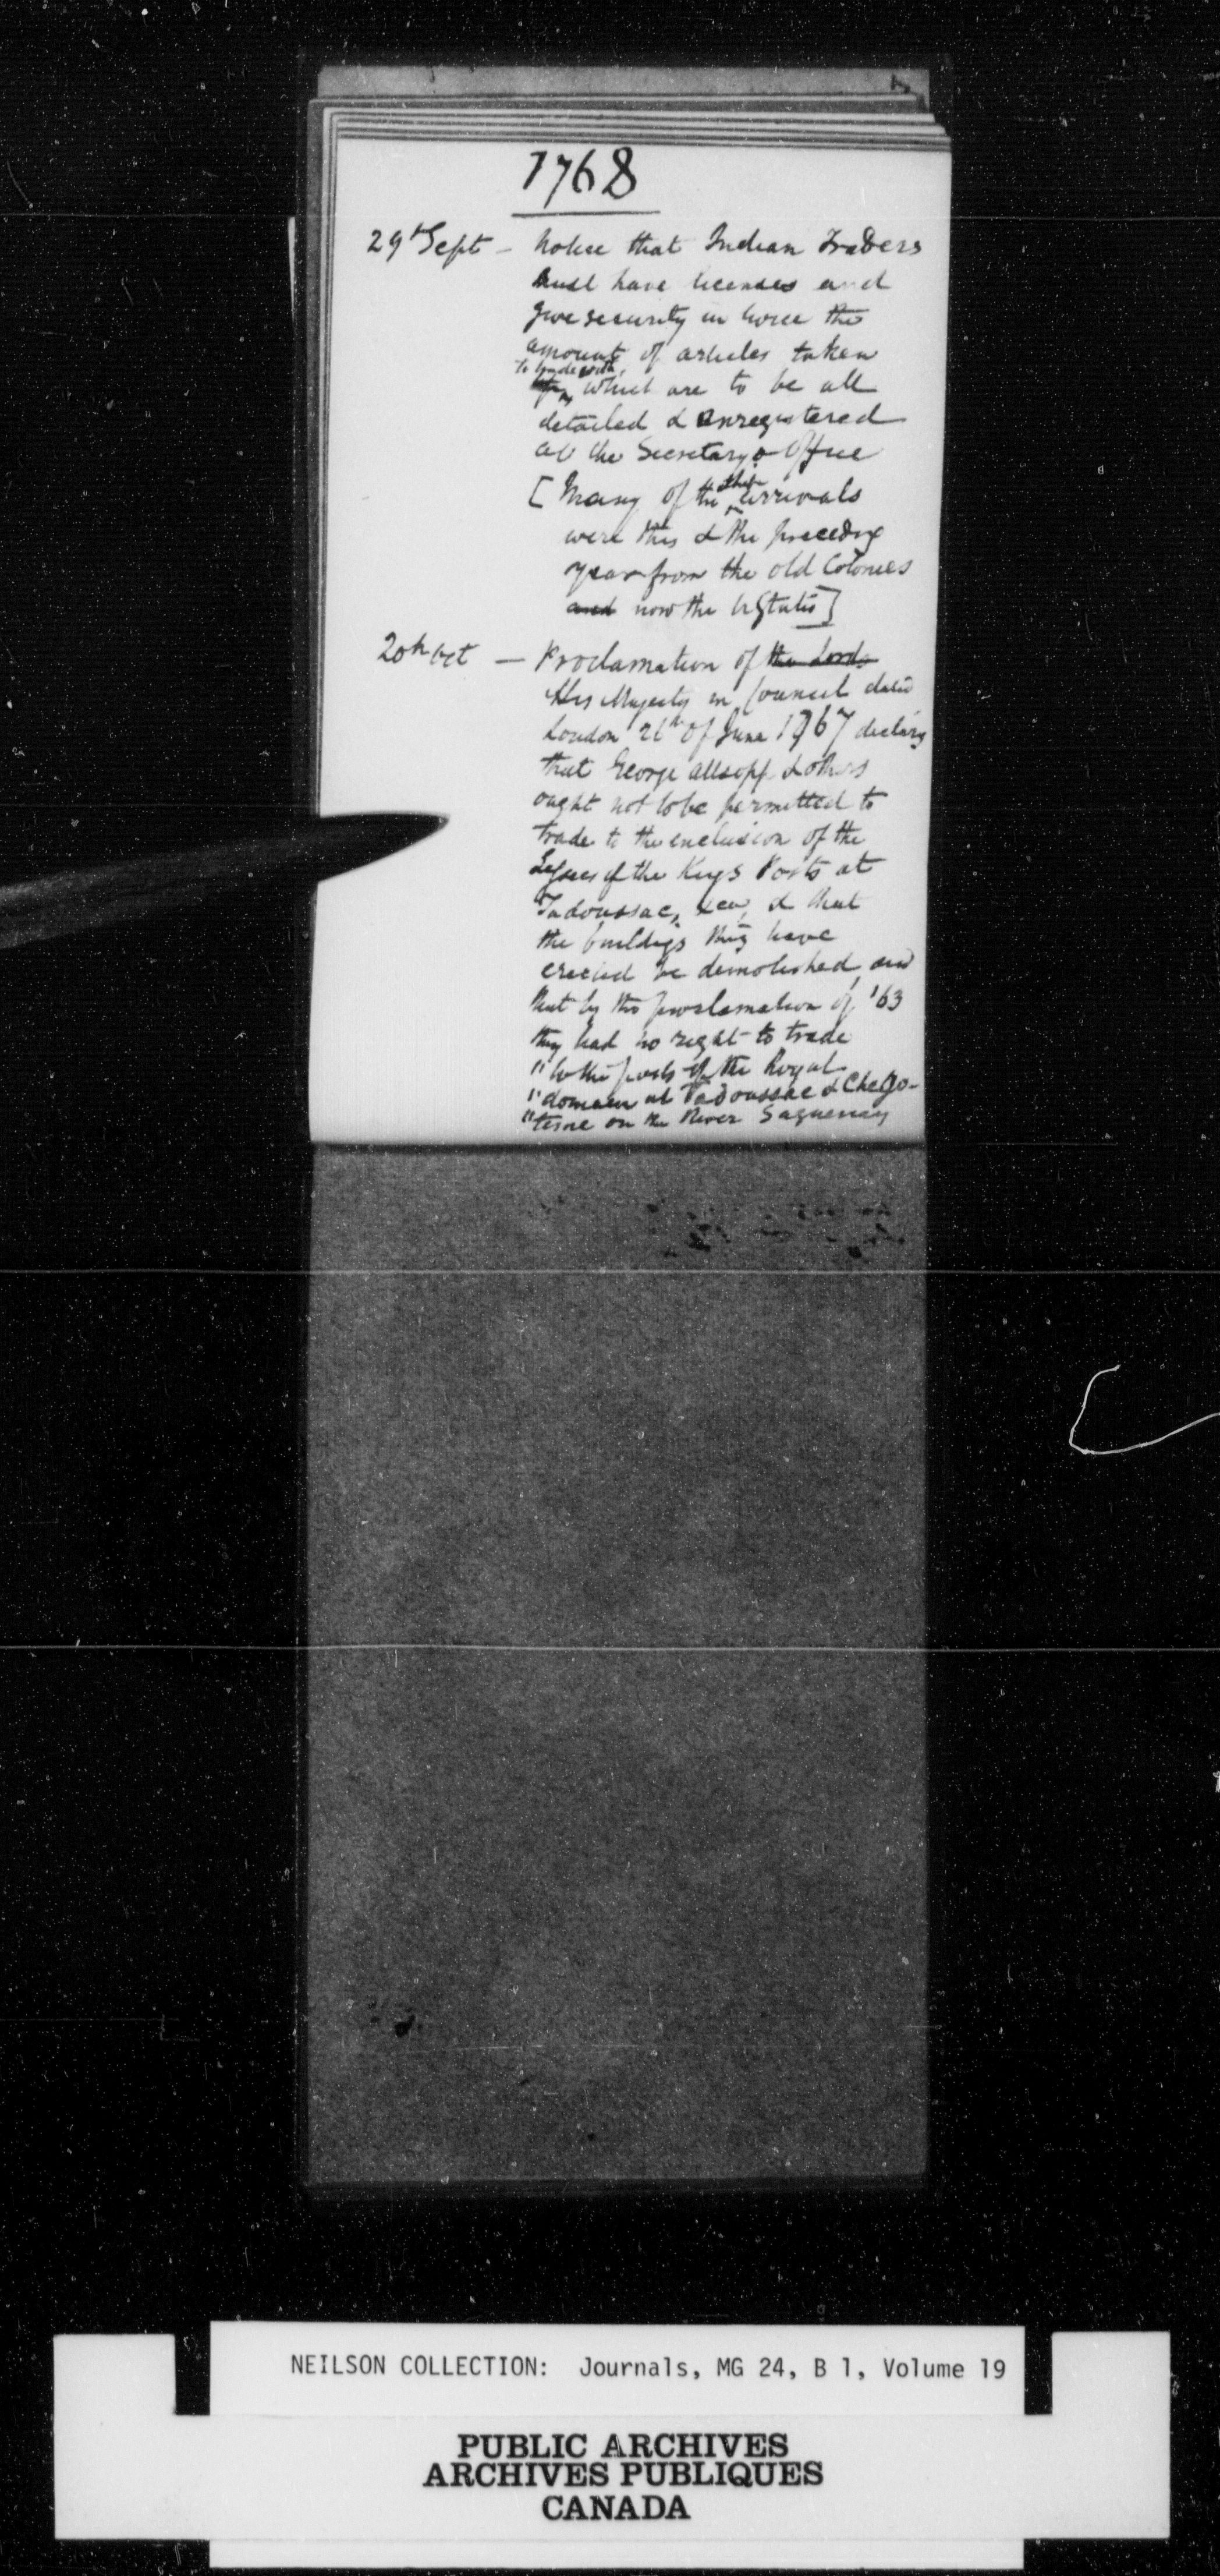 1768
29th Sept - Notice that Indian Traders
must have licenses and
give security in twice the
amount of articles taken
to trade with, which are to be all
detailed & enregistered
at the Secretarys Office
[Many of the ship arrivals
were this & the preceedg
year from the old Colonies
and now the U States]
20th Oct — Proclamation of the Lords
His Majesty in Council dated
London 26th of June 1767 declarg
that George Allsopp & others
ought not to be permitted to
trade to the exclusion of the
of the Kings Posts at
Tadoussac, &ca, & that
the buildigs they have
erected be demolished, and
that by the proclamation of '63
they had no right to trade
"to the posts of the Royal
"domain at Tadoussac & Chego-
"timie on the River Saguenay
NEILSON COLLECTION: Journals, MG 24, B 1, Volume 19
PUBLIC ARCHIVES
ARCHIVES PUBLIQUES
CANADA